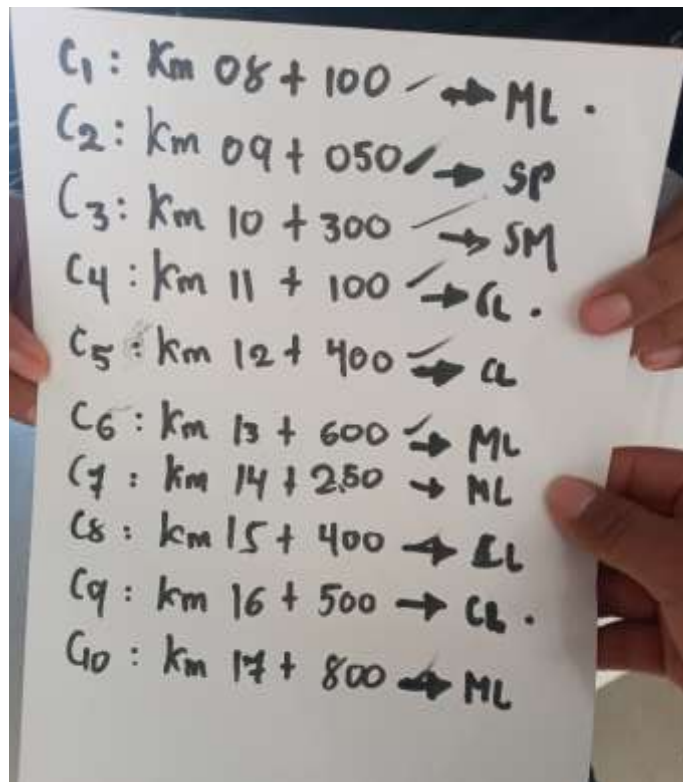 C1 : Km 08 + 100 → ML .
C2 : Km 09 + 050 → SP
C3 : Km 10 + 300 → SM
C4 : Km 11 + 100 → CL .
C5 : Km 12 + 400 → CL
C6 : Km 13 + 600 → ML
C7 : Km 14 + 250 → ML
C8 : Km 15 + 400 → CL
C9 : Km 16 + 500 → CL .
C10 : Km 17 + 800 → ML